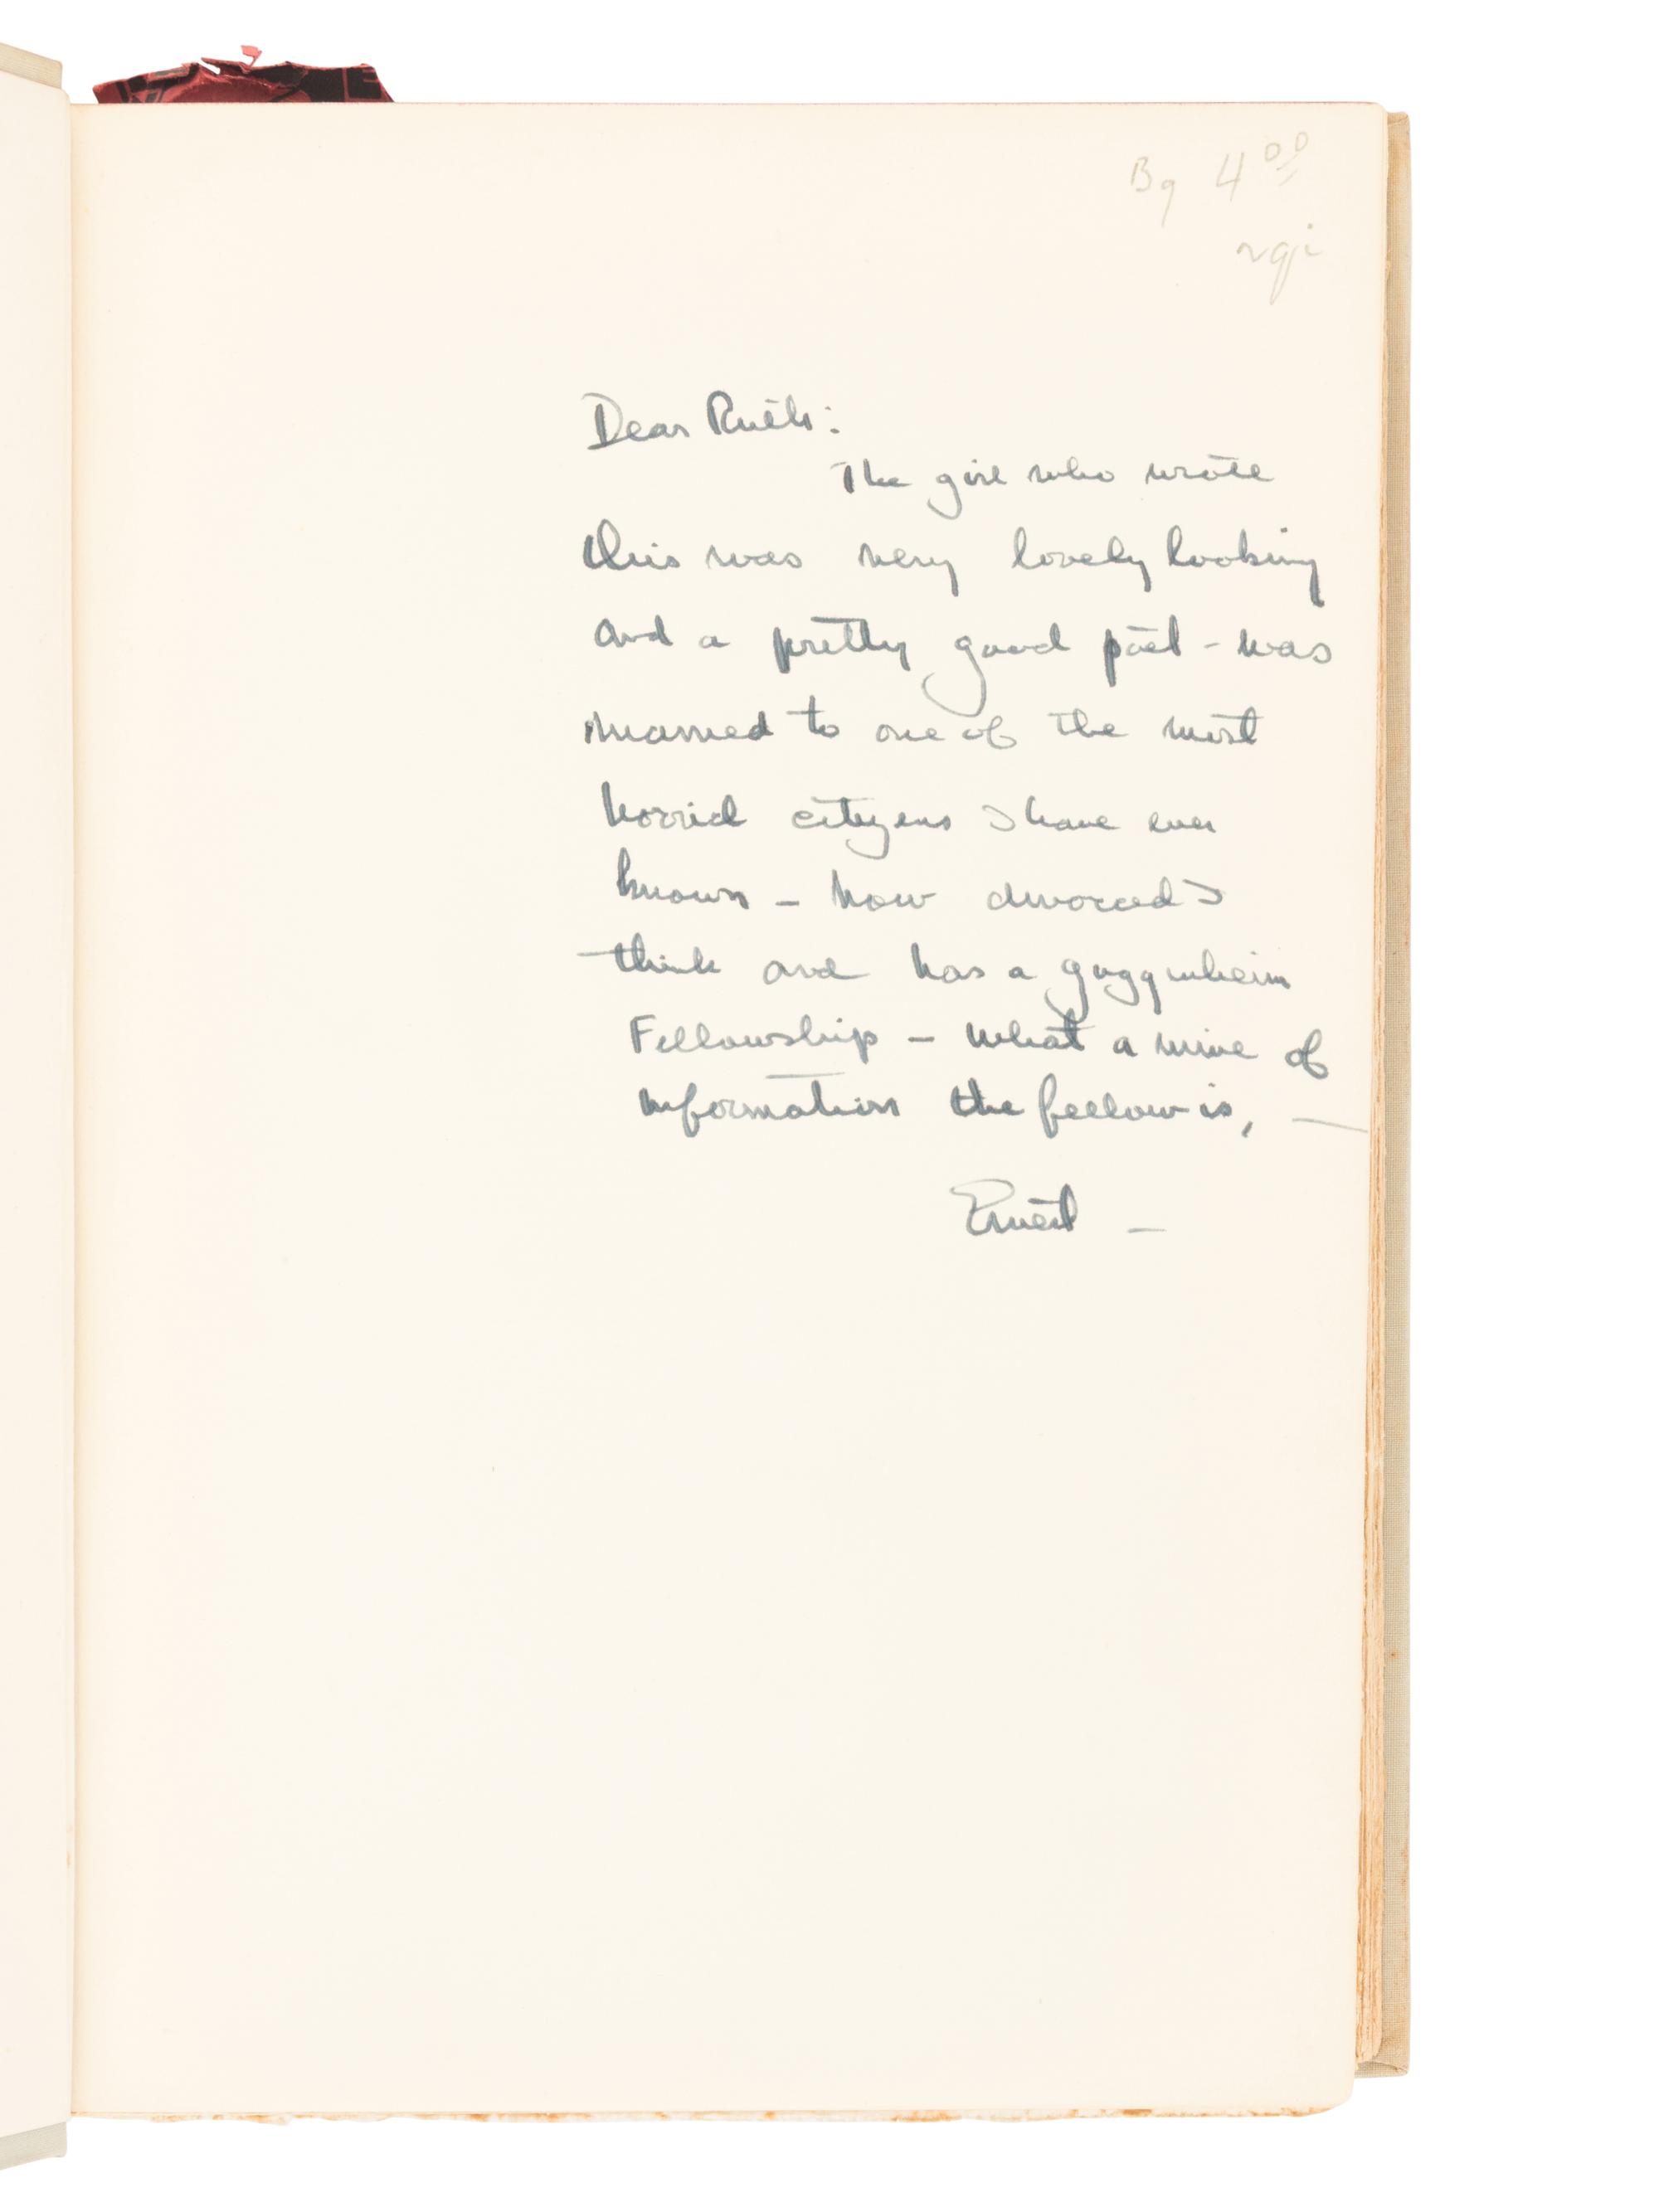 Bg 4 00
Dear Ruth:
The girl who wrote
this was very lovely looking
and a pretty good poet - was
married to one of the most
horrid citizens I have ever
known - now divorced I
think and has a guggenheim
Fellowship - What a mine of
information the fellow is, —
Ernest -